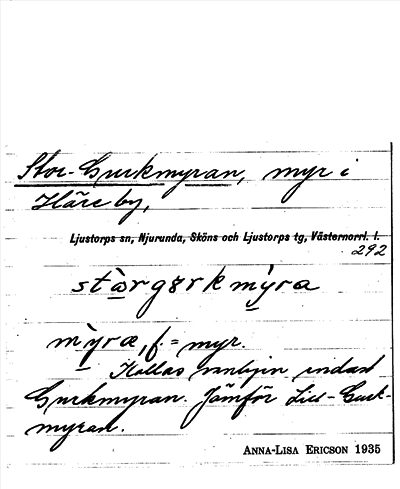 Stor-Gurkmyran, myr i
Häre by,
Ljustorps sn, Njurunda, Sköns och Ljustorps tg, Västernorrl. l.
292
myra, f. = myr.
Kallas vanligen endast
Gurkmyran. Jämför Lill-Gurk-
myran.
ANNA-LISA ERICSON 1935